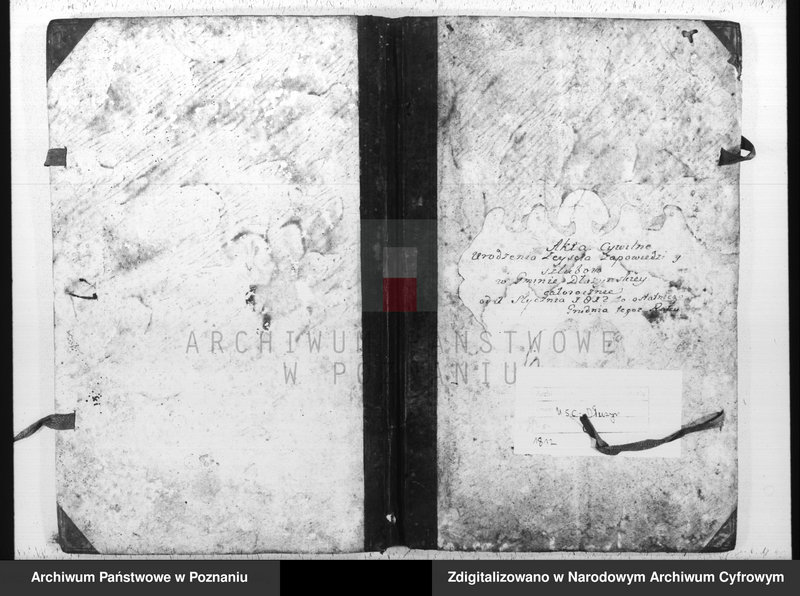 Akta Cywilne
Urodzenia Zeyścia Zapowiedzi y
szlubow
w Gminie Dłuzynskiey
całorocznie
od 1 Stycznia 1812 do ostatniego
Grudnia tegoż Roku
ARCHIWUM PAŃSTWOWE
W POZNANIU
USC - Dłużyn
1812
Archiwum Państwowe w Poznaniu
Zdigitalizowano w Narodowym Archiwum Cyfrowym